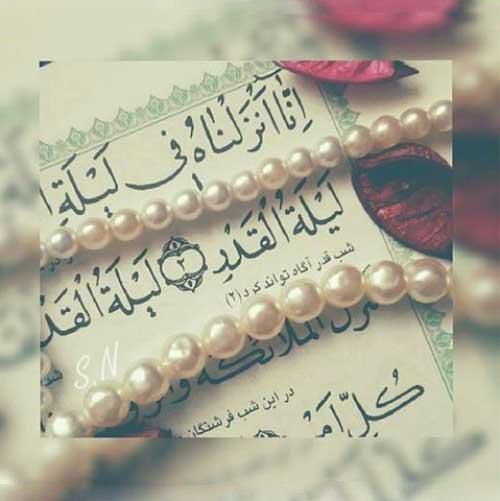 إِنَّا أَنْزَلْنَاهُ فِي لَيْلَةِ
لَيْلَةُ الْقَدْرِ ﴿٢﴾ لَيْلَةُ الْقَدْ
شب قدر آگاه تواند کرد (۲)
الْمَلَائِكَةُ
در این شب فرشتگان
كُلِّ أَمْ
S.N